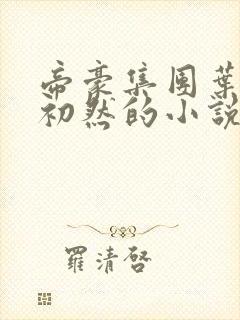 帝豪集團葉
初然的小說
羅清啓